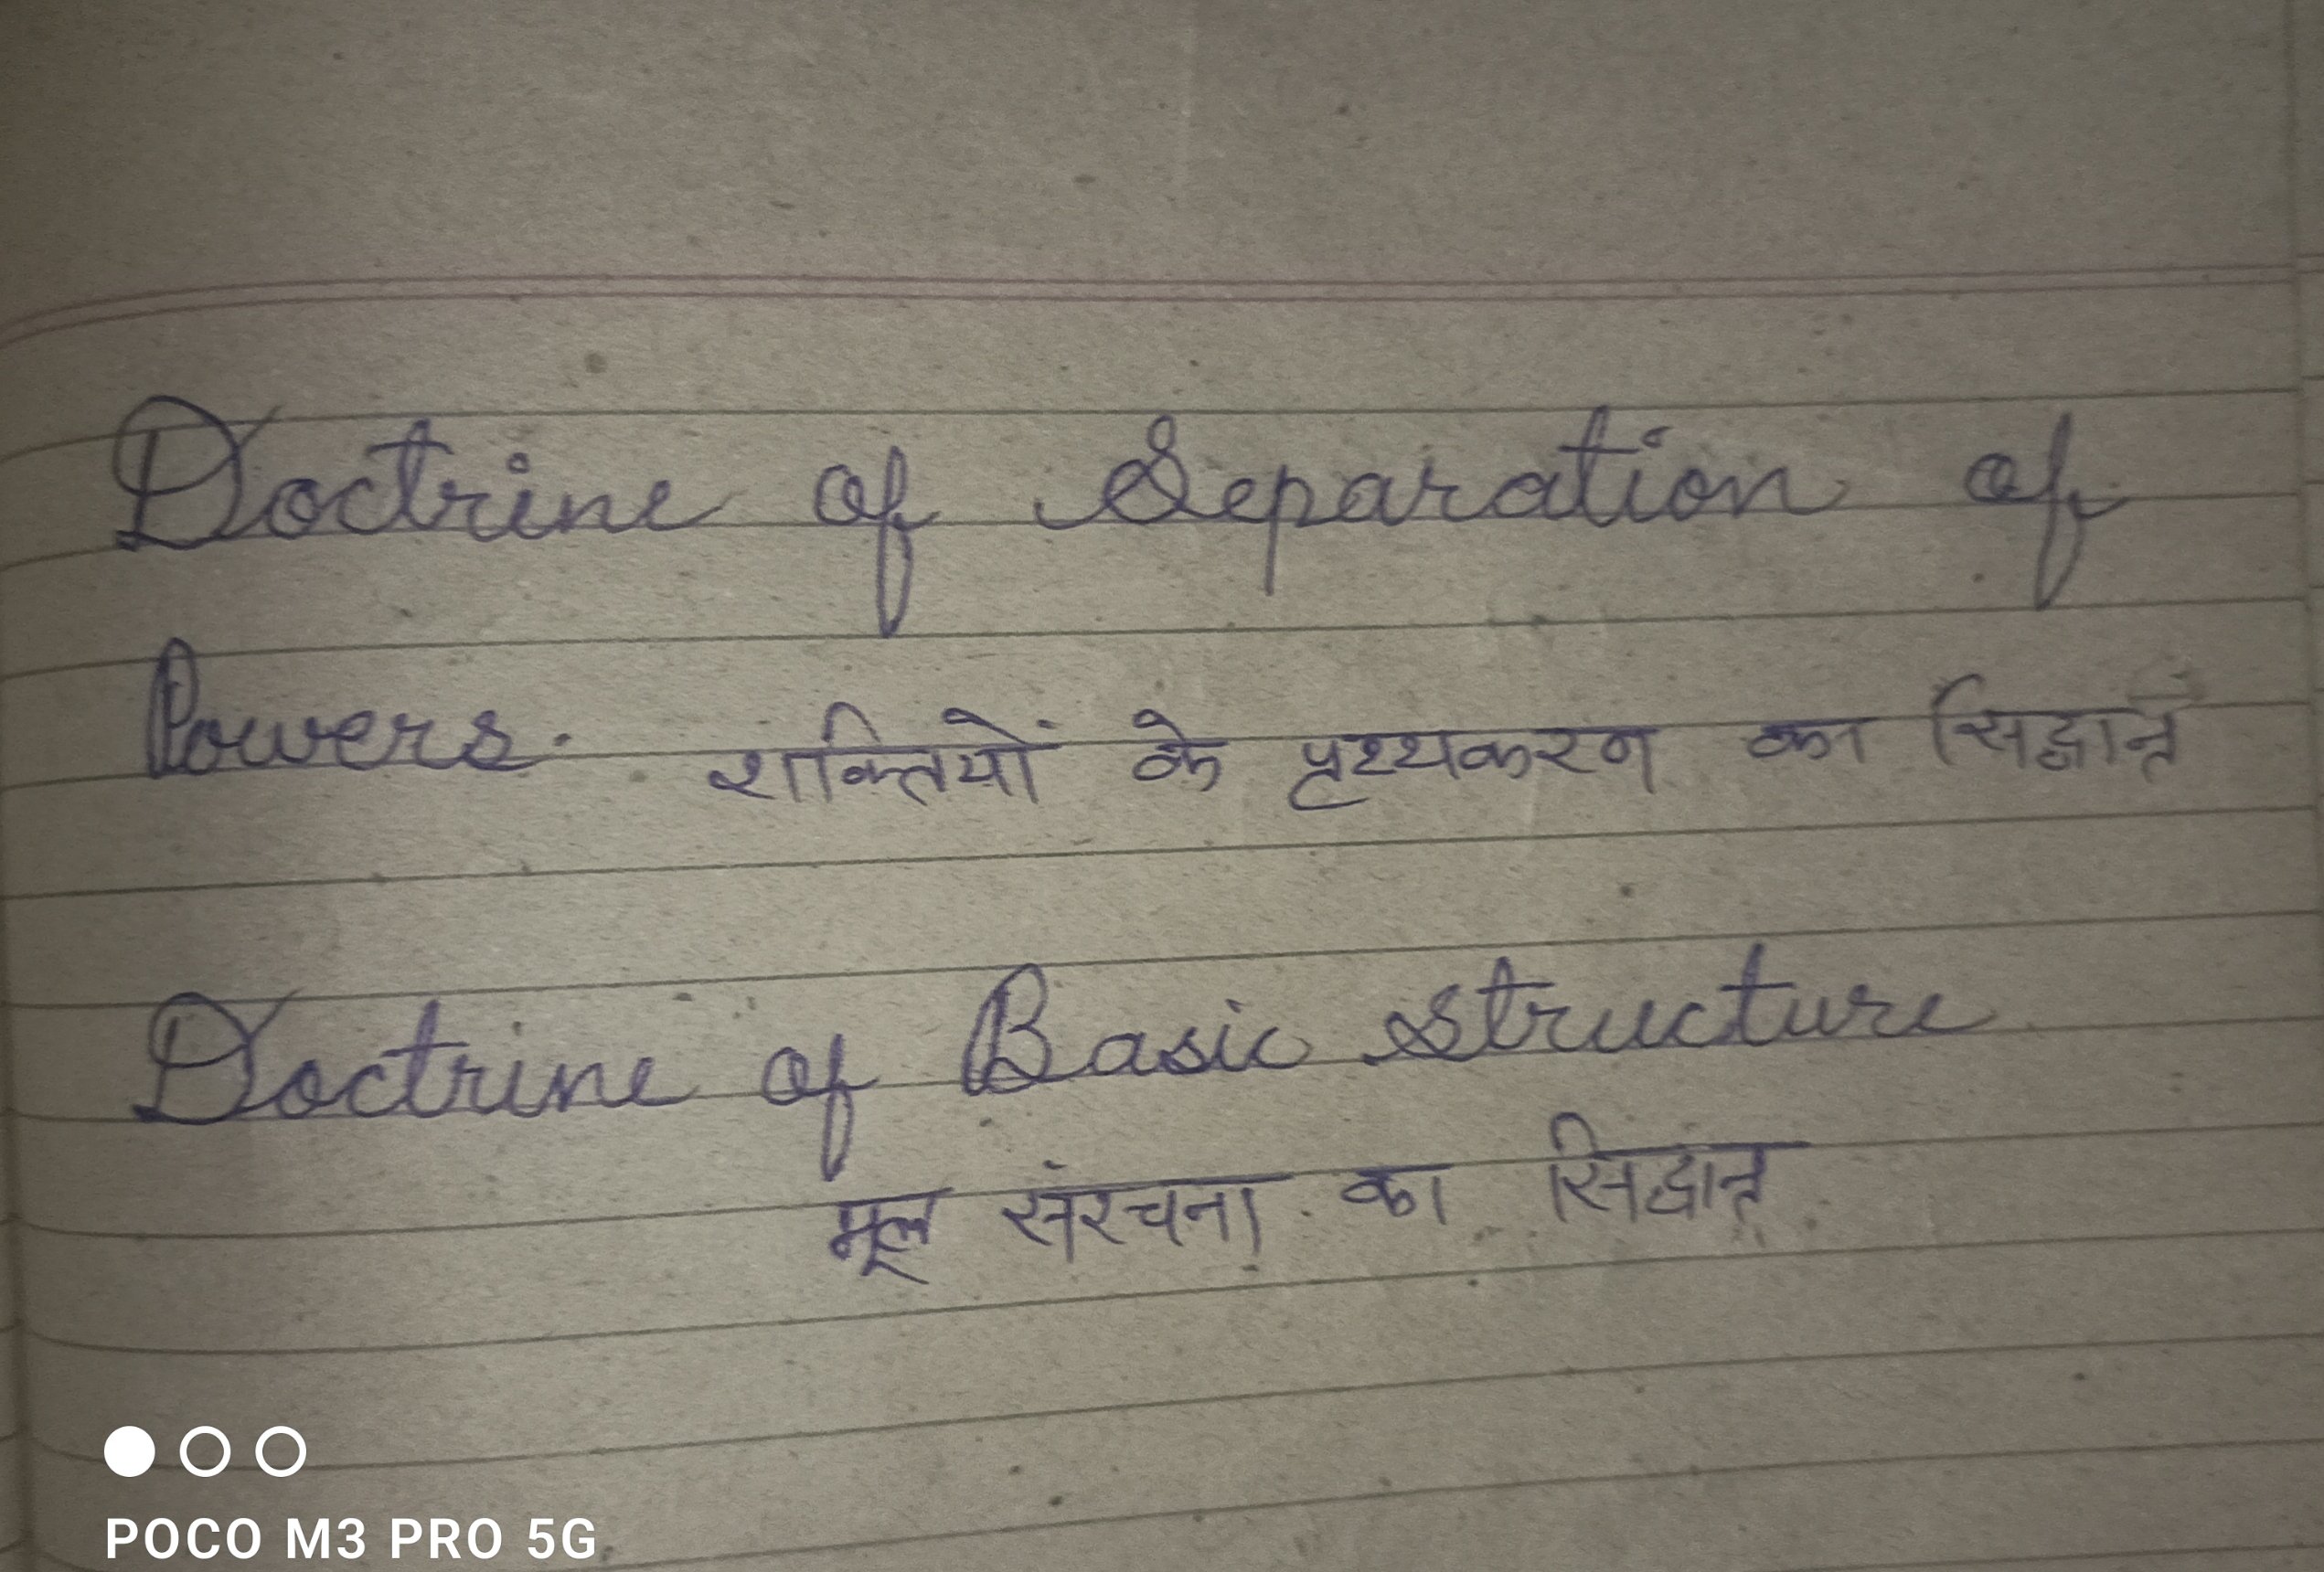 Doctrine of Separation of
Powers. शक्तियों के पृथ्यकरण का सिद्धान्त
Doctrine of Basic structure
मूल संरचना का सिद्धान्त
POCO M3 PRO 5G